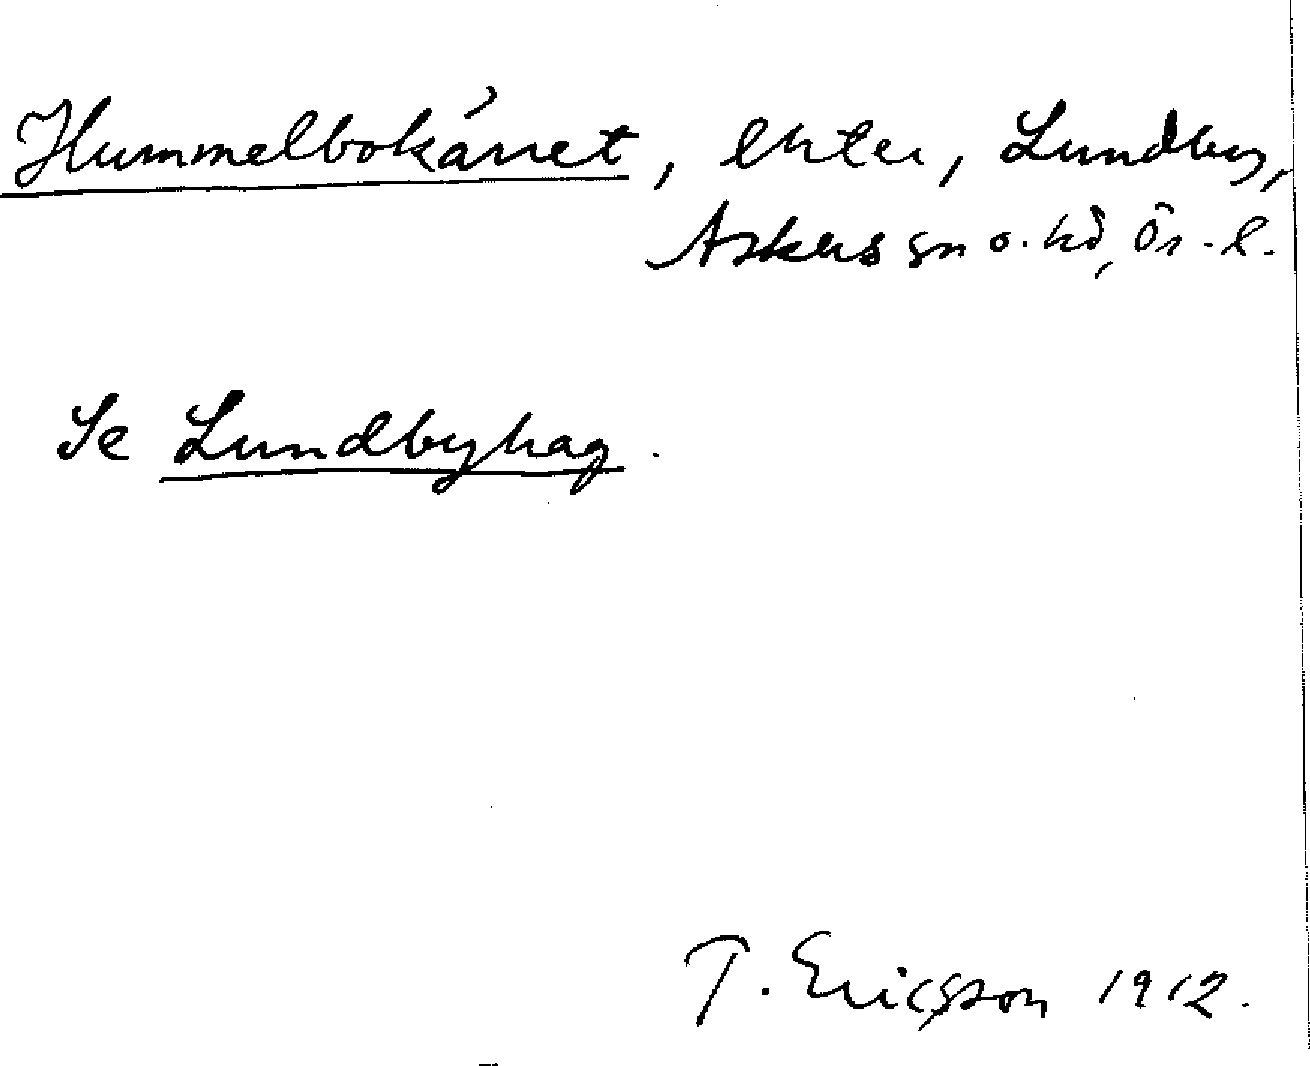 Hummelbokärret, Lunda, Lundby,
Askers sn o. hd, Ör. l.
Se Lundbyhag.
T. Ericsson 1912.